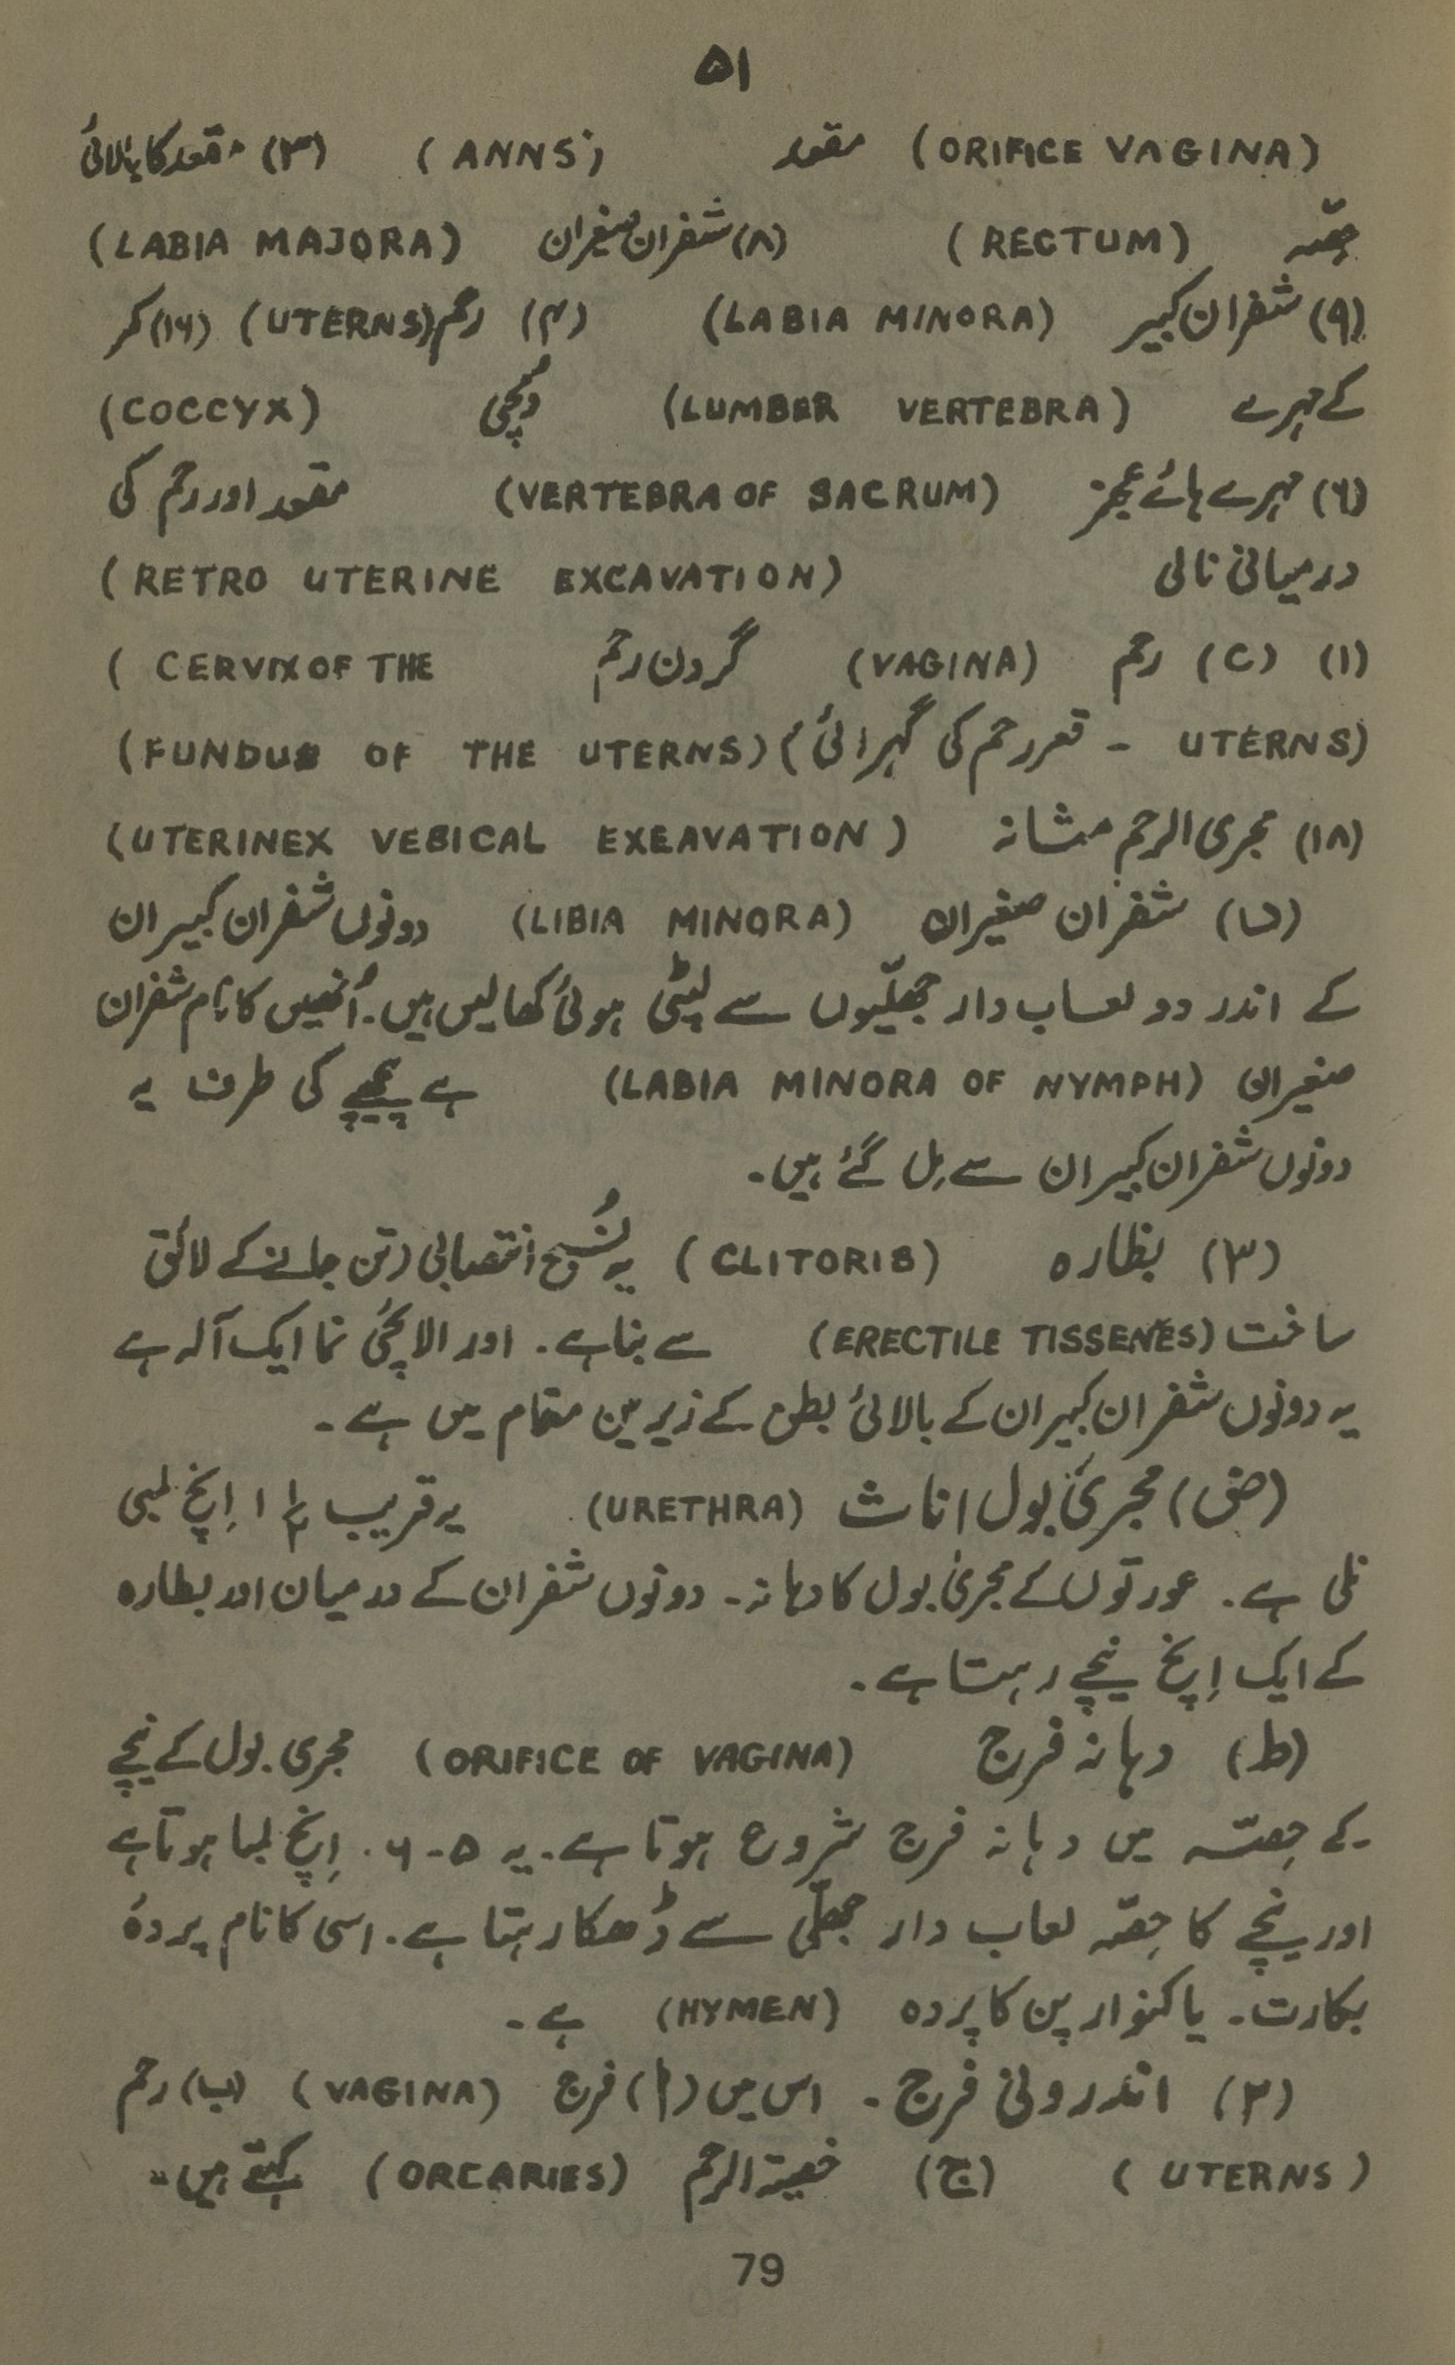 ۵۱
(ORIFICE VAGINA) مقعد (ANNS) (۳) مقعد کا بالائی
حِصّہ (RECTUM) (۸) شفران صغیران (LABIA MAJORA)
(۹) شفران کبیر (LABIA MINORA) (۴) رحم (UTERNS) (۱۶) کمر
کے مہرے (LUMBER VERTEBRA) دُمچی (COCCYX)
(۶) مہرے ہائے عجز (VERTEBRA OF SACRUM) مقعد اور رحم کی
درمیانی نالی (RETRO UTERINE EXCAVATION)
(۱) (C) رحم (VAGINA) گردن رحم (CERVIX OF THE
UTERNS) - قعر رحم کی گہرائی) (FUNDUS OF THE UTERNS)
(۱۸) مجری الرحم مثانہ (UTERINEX VEBICAL EXEAVATION)
شفران صغیران (LIBIA MINORA) دونوں شفران کبیران
کے اندر دو لعاب دار جھلّیوں سے لپٹی ہوئی کھالیں ہیں۔ اُنھیں کا نام شفران
صغیران (LABIA MINORA OF NYMPH) ہے پیچھے کی طرف یہ
دونوں شفران کبیران سے مِل گئے ہیں۔
(۳) بظارہ (CLITORIS) یہ نُسیج انتصابی (تن جانے کے لائق
ساخت (ERECTILE TISSENES) سے بنا ہے۔ اور الائچی نما ایک آلہ ہے
یہ دونوں شفران کبیران کے بالائی بطن کے زیرین مقام میں ہے۔
(ض) مجریٰ بول اناث (URETHRA) یہ قریب ۱ ۱/۲ اِنچ لمبی
نلی ہے۔ عورتوں کے مجریٰ بول کا دہانہ۔ دونوں شفران کے درمیان اور بظارہ
کے ایک اِنچ نیچے رہتا ہے۔
(ط) دہانہ فرج (ORIFICE OF VAGINA) مجری بول کے نیچے
کے حِصّہ میں دہانہ فرج شروع ہوتا ہے۔ یہ ۵-۶ اِنچ لمبا ہوتا ہے
اور نیچے کا حِصّہ لعاب دار جھلّی سے ڈھکا رہتا ہے۔ اسی کا نام پردۂ
بکارت۔ یا کنوار پن کا پردہ (HYMEN) ہے۔
(۲) اندرونی فرج۔ اس میں (ا) فرج (VAGINA) (ب) رحم
(UTERNS) (ج) خصیۃ الرحم (ORCARIES) کہتے ہیں۔
79